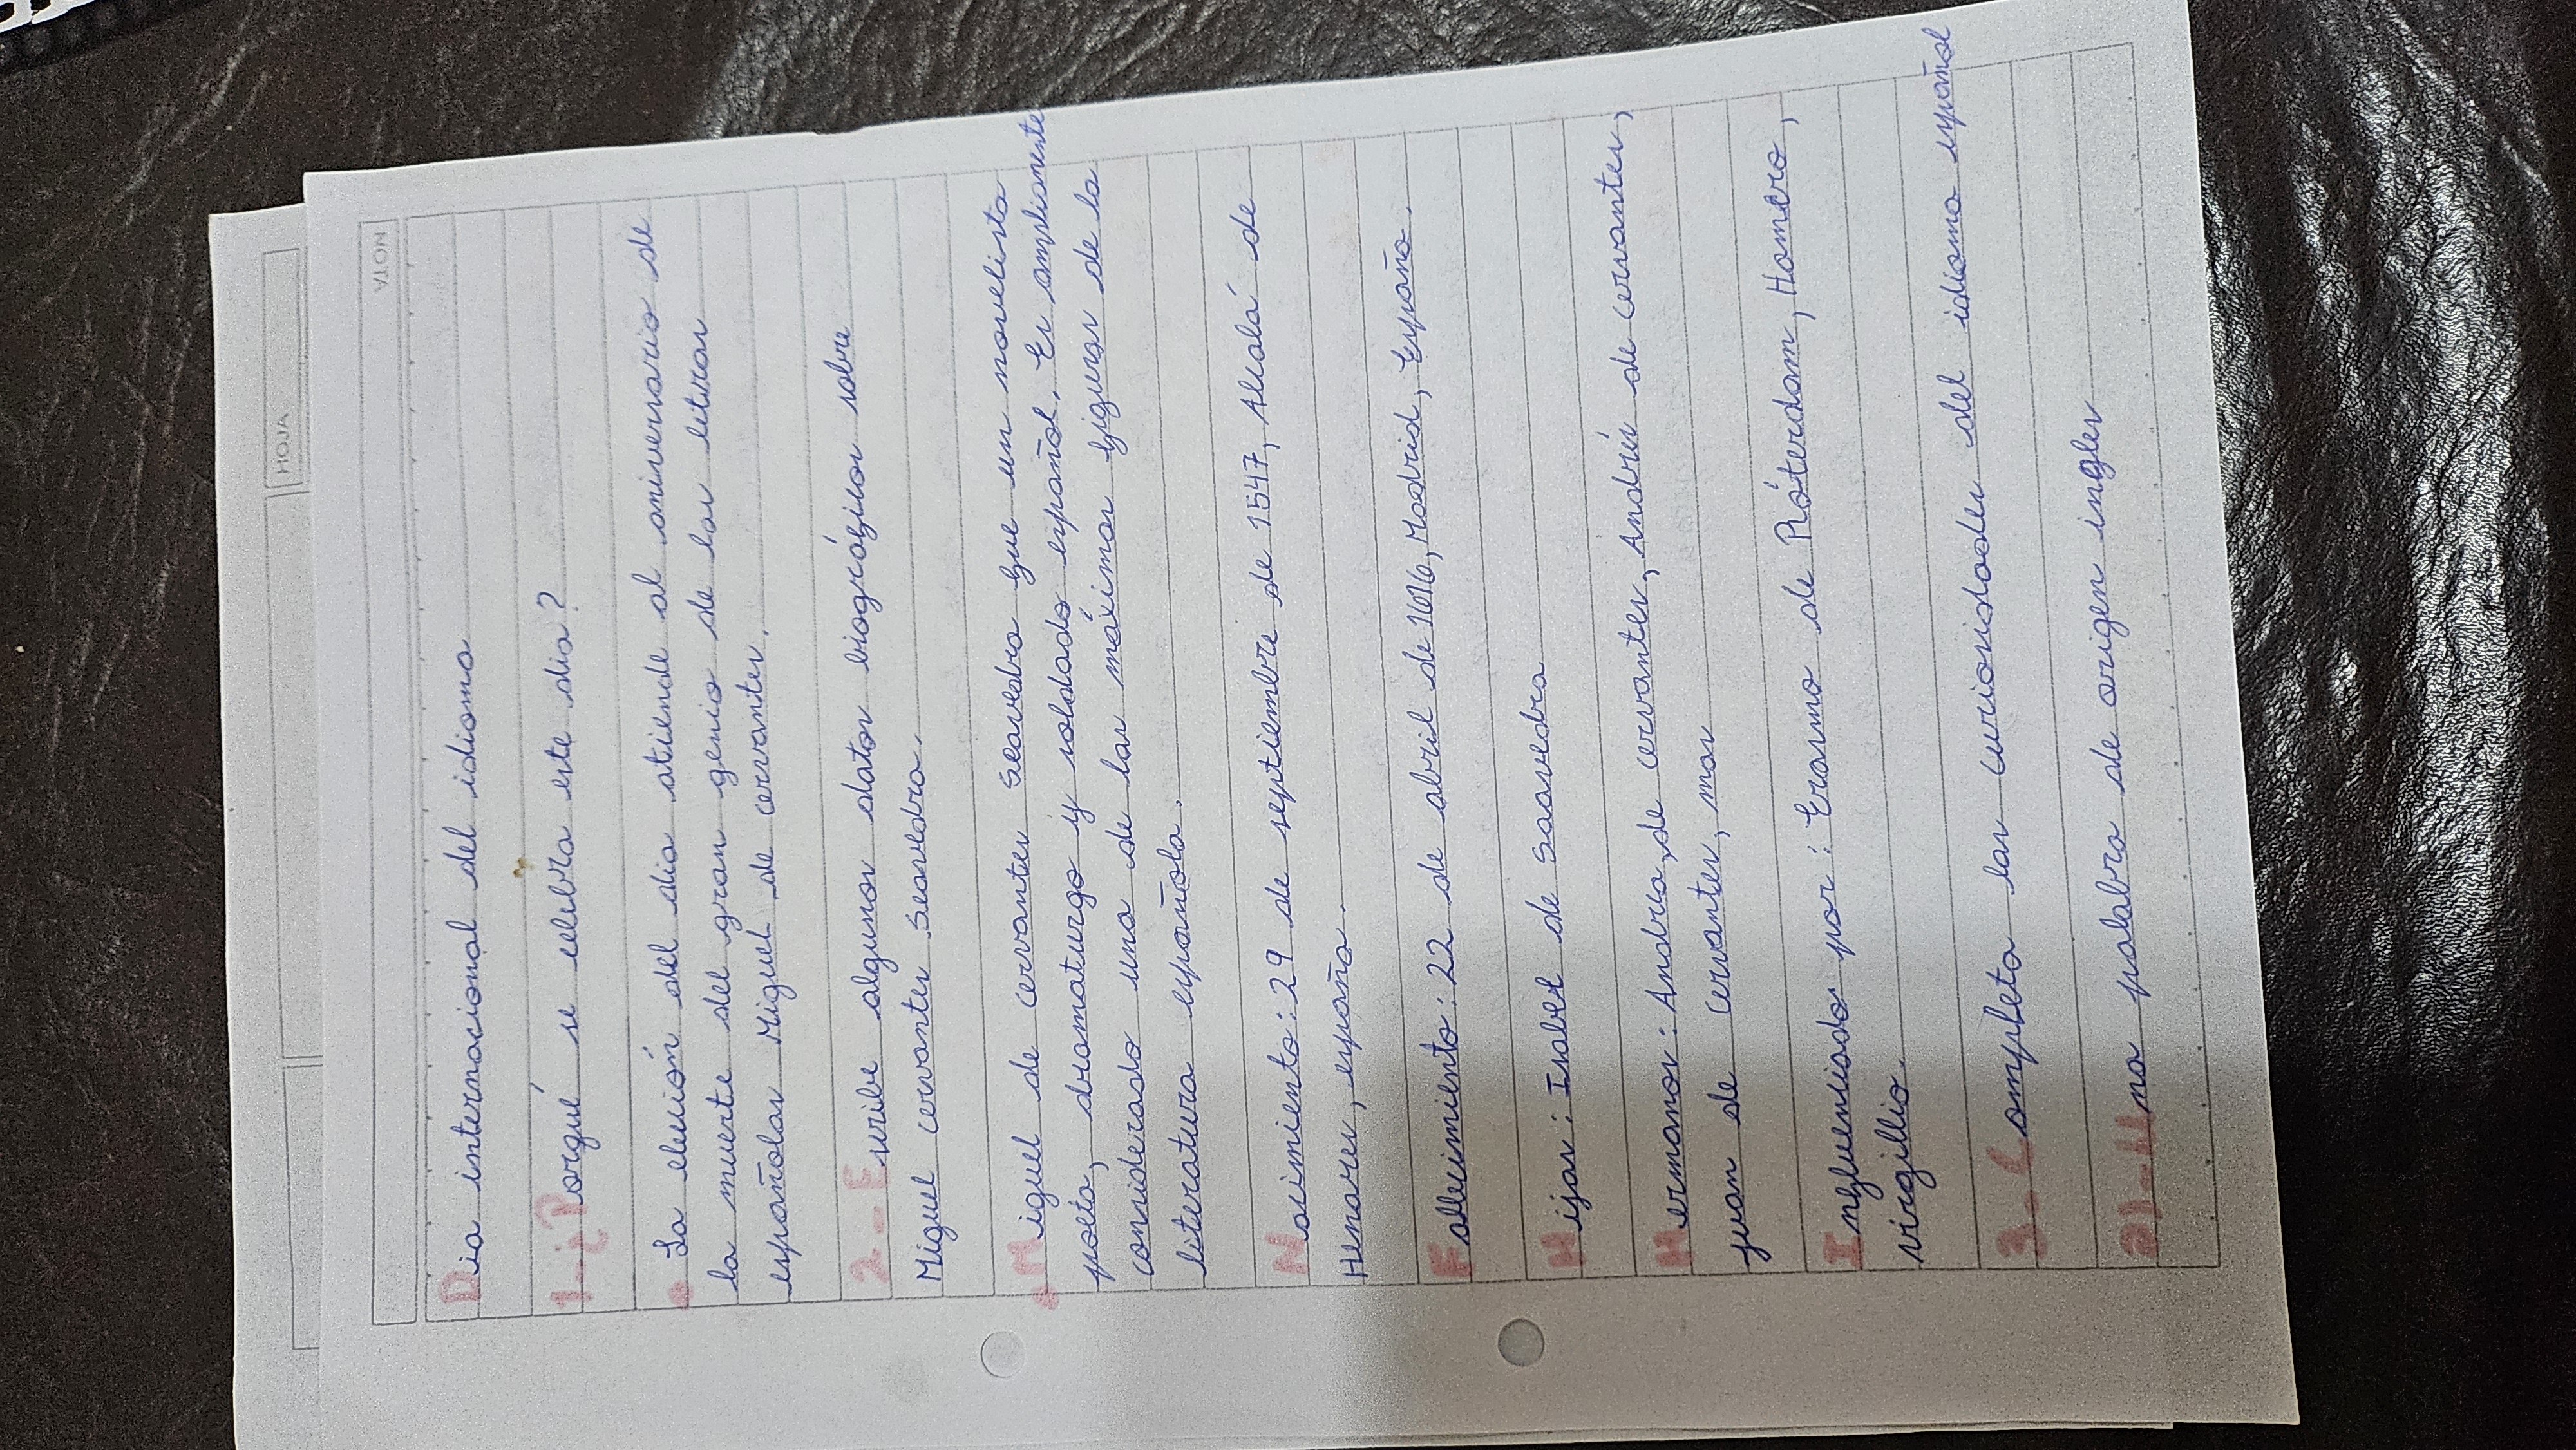 HOJA
NOTA
Dia internacional del idioma
1-¿Porqué se celebra este dia?
• La elección del dia atiende al aniversario de
la muerte del gran genio de las letras
españolas Miguel de cervantes.
2-Escribe algunos datos biográficos sobre
Miguel cervantes Seavedra.
• Miguel de cervantes Seavedra fue un novelista
poeta, dramaturgo y soldado español. Es ampliamente
considerado una de las máximas figuras de la
literatura española.
Nacimiento: 29 de septiembre de 1547, Alcalá de
Henares, españa.
Fallecimiento: 22 de abril de 1616, Madrid, España.
Hijas: Isabel de Saavedra
Hermanos: Andrea de cervantes, Andrés de cervantes,
juan de cervantes, mas
Influenciado por: Erasmo de Róterdam, Homero,
virgillio.
3-Completa las curiosidades del idioma español
a)-Una palabra de origen ingles